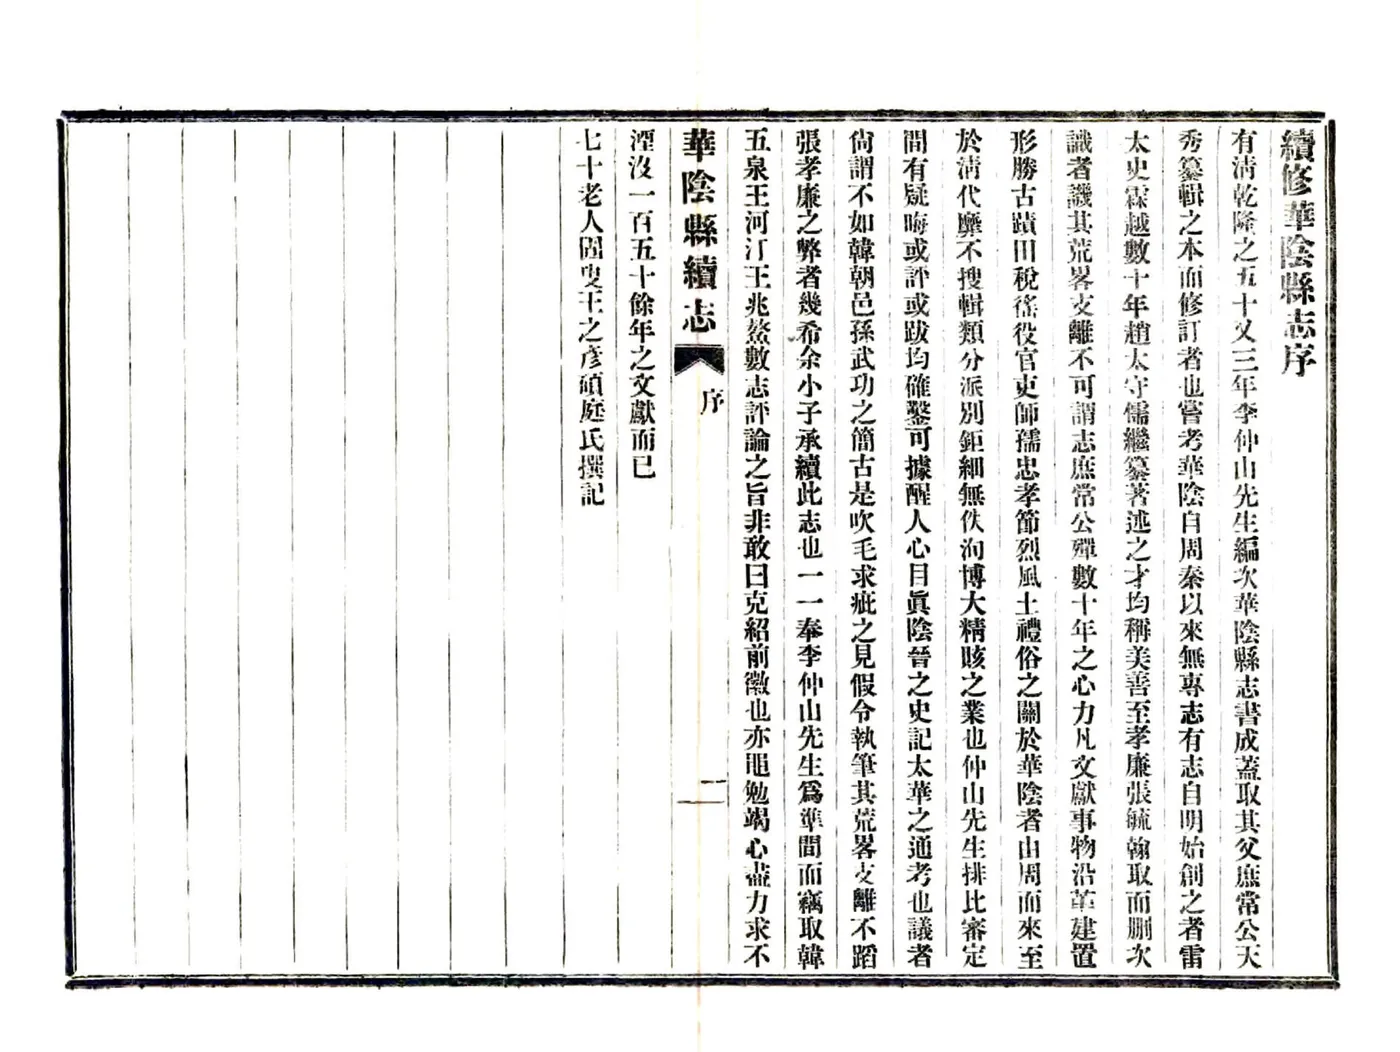 續修華陰縣志序
有淸乾隆之五十又三年李仲山先生編次華陰縣志書成蓋取其父庶常公天
秀纂輯之本而修訂者也嘗考華陰自周秦以來無專志有志自明始創之者雷
太史霖越數十年趙太守儒繼纂著述之才均稱美善至孝廉張毓翰取而删次
識者譏其荒畧支離不可謂志庶常公殫數十年之心力凡文獻事物沿革建置
形勝古蹟田稅徭役官吏師孺忠孝節烈風土禮俗之關於華陰者由周而來至
於淸代靡不搜輯類分派別鉅細無佚洵博大精賅之業也仲山先生排比審定
間有疑晦或評或跋均確鑿可據醒人心目眞陰晉之史記太華之通考也議者
尙謂不如韓朝邑孫武功之簡古是吹毛求疵之見假令執筆其荒畧支離不蹈
張孝廉之弊者幾希余小子承續此志也一一奉李仲山先生爲準間而竊取韓
五泉王河汀王兆鰲數志評論之旨非敢曰克紹前徽也亦黽勉竭心盡力求不
華陰縣續志
序
一
湮沒一百五十餘年之文獻而已
七十老人固叟王之彥碩庭氏撰記